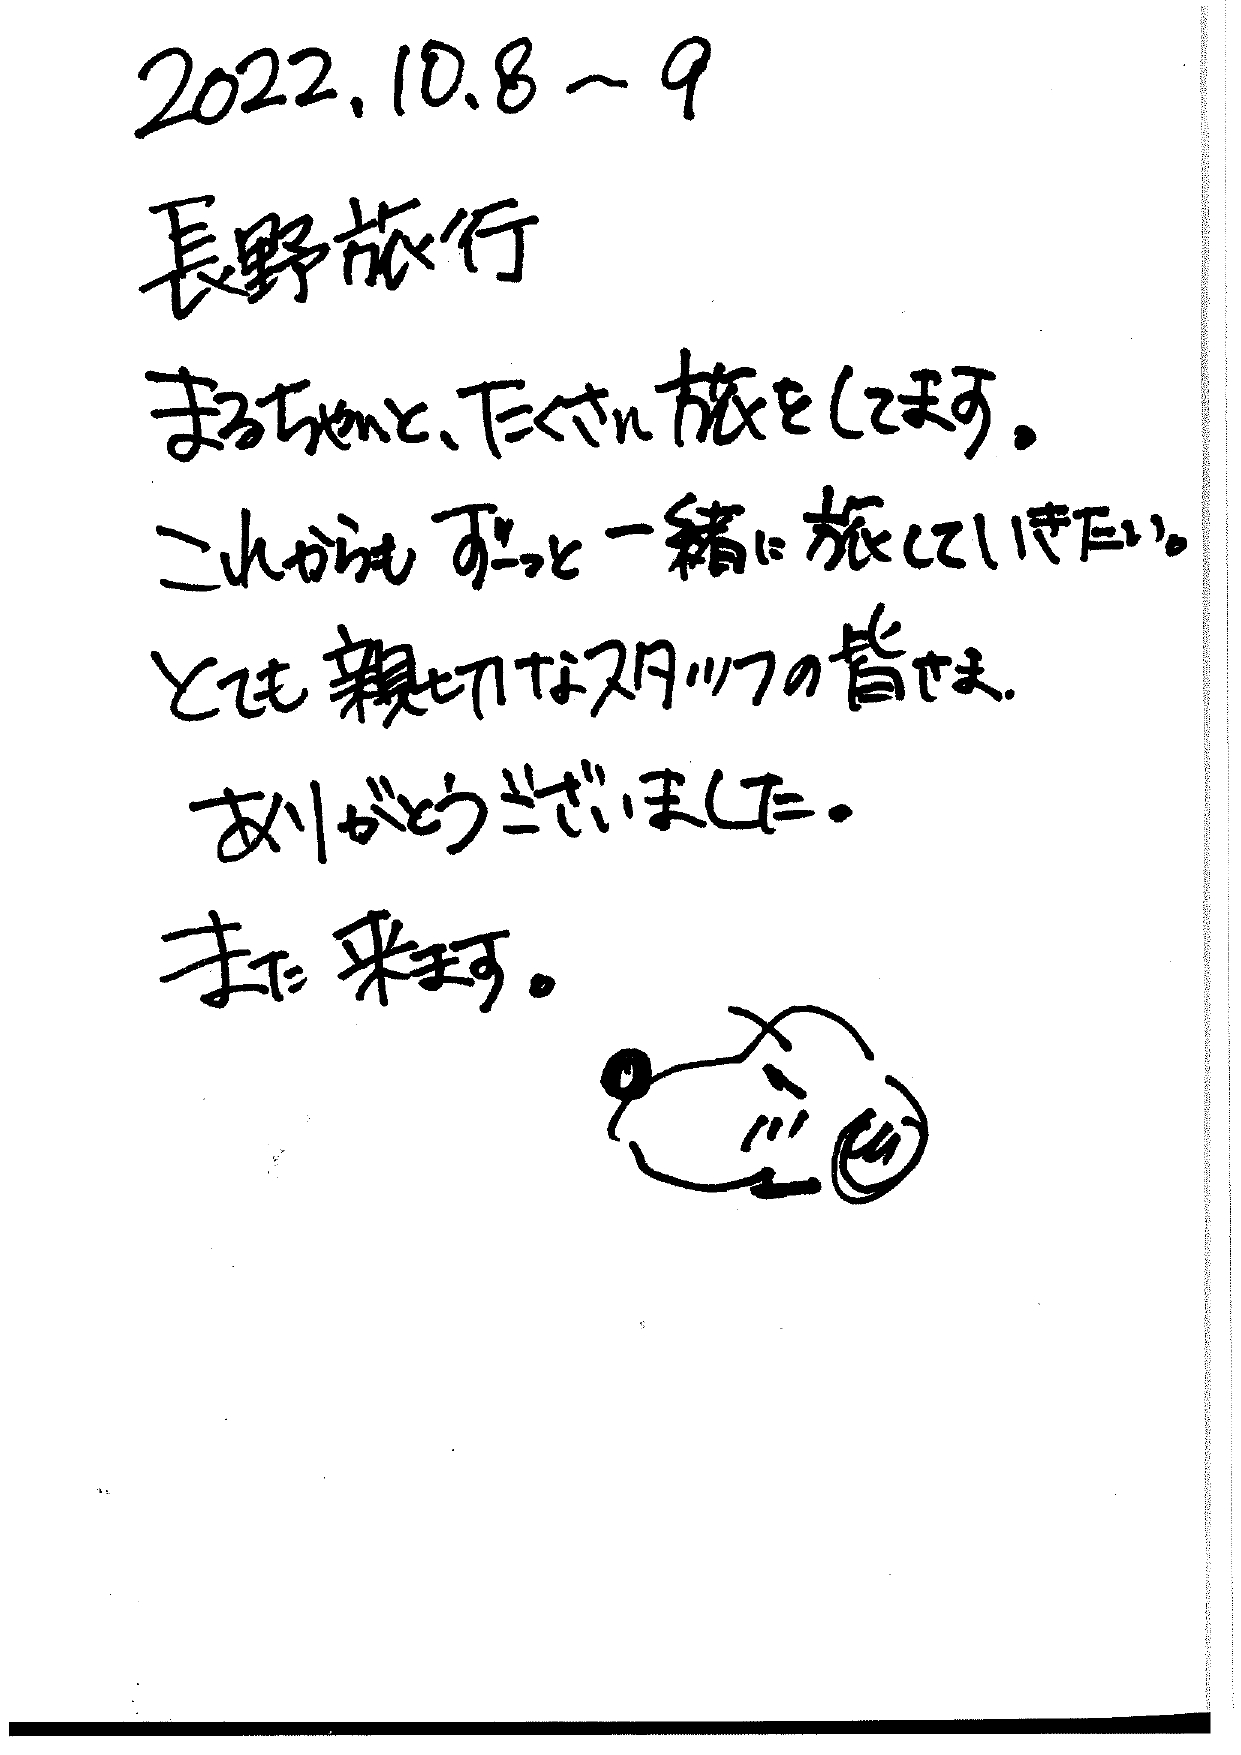 2022.10.8～9
長野旅行
まるちゃんと、たくさん旅をしてます。
これからもずーっと一緒に旅していきたい。
とても親切なスタッフの皆さま.
ありがとうございました。
また来ます。